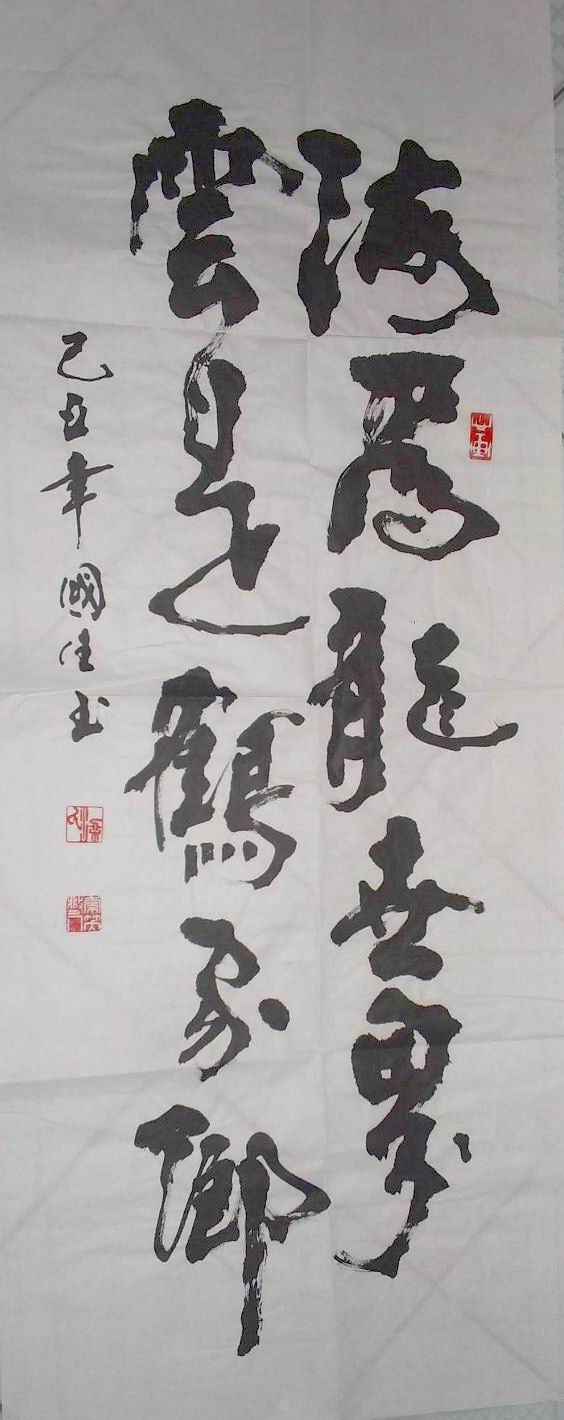 海為龍世界
雲是鶴家鄉
己丑年國佳書